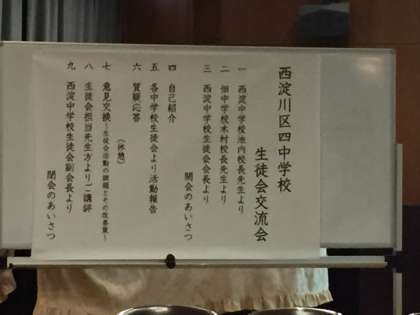 西淀川区四中学校
生徒会交流会
一 西淀中学校池内校長先生より
二 佃中学校木村校長先生より
三 西淀中学校生徒会会長より
開会のあいさつ
四 自己紹介
五 各中学校生徒会より活動報告
六 質疑応答
(休憩)
七 意見交換～生徒会活動の課題とその改善策～
八 生徒会担当先生方よりご講評
九 西淀中学校生徒会副会長より
閉会のあいさつ